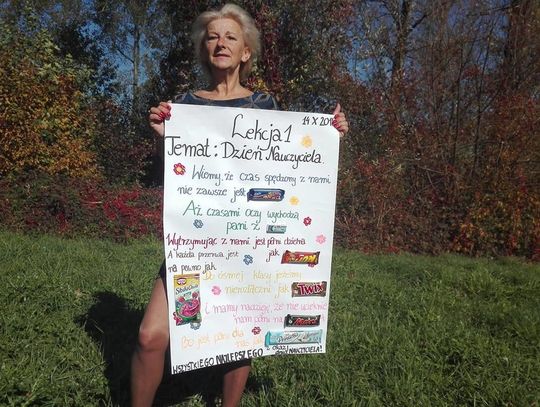 Lekcja 1
14 X 201
Temat: Dzień Nauczyciela.
Wiemy, że czas spędzony z nami
nie zawsze jest
Aż czasami oczy wychodzą
pani z
Wytrzymując z nami jest pani dzielna
jak
A każda przerwa jest
na pewno jak
Do ósmej klasy jesteśmy
nierozłączni jak TWIX
I mamy nadzieję, że nie ucieknie
nam pani na
Bo jest pani dla
nas jak
WSZYSTKIEGO NAJLEPSZEGO z okazji
DNIA NAUCZYCIELA!